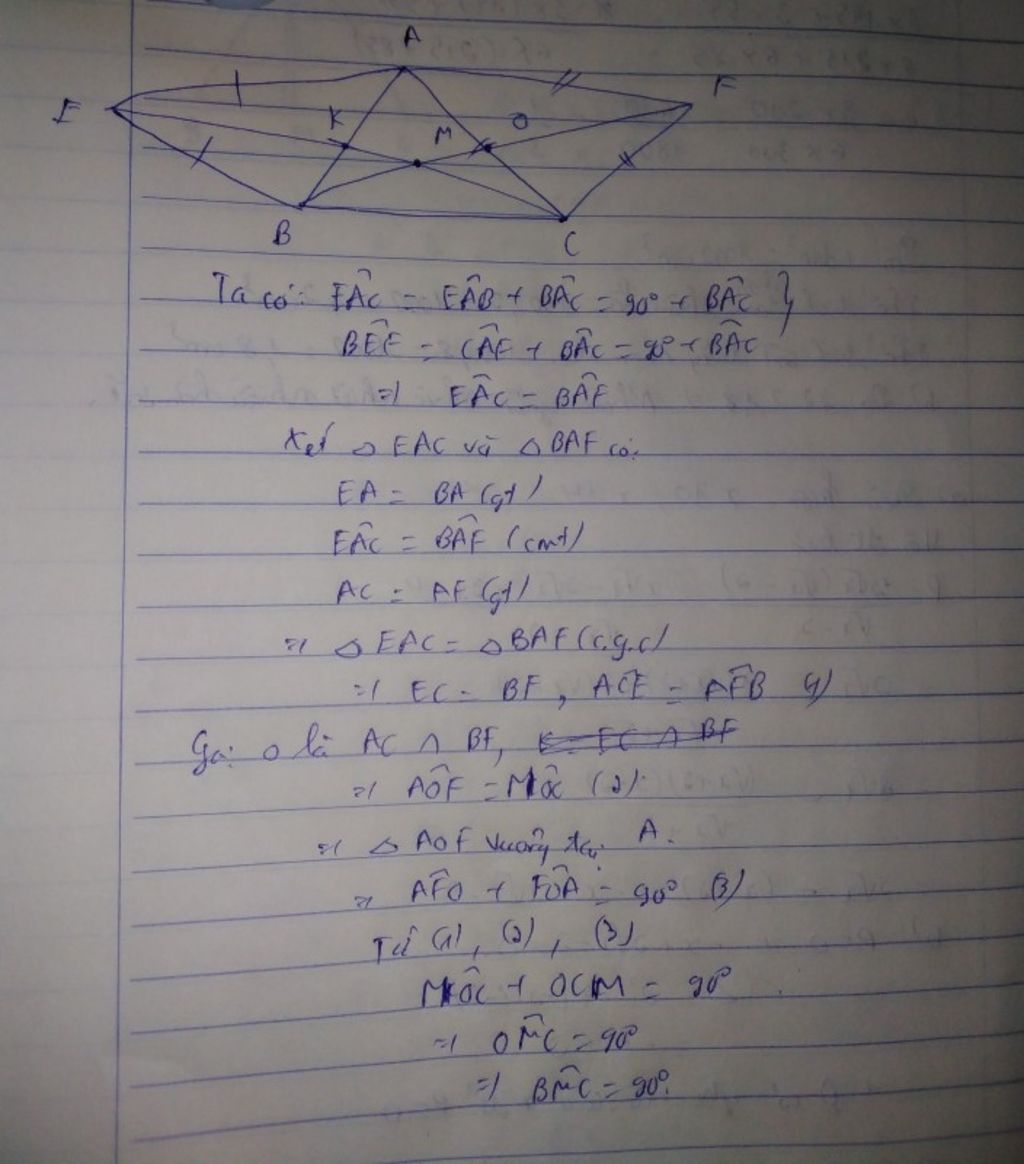 A
E
F
K
M
O
B
C
Ta có: EÂC = EÂB + BÂC = 90° + BÂC }
BÊF = CÂF + BÂC = 90° + BÂC
=) EÂC = BÂF
Xét △ EAC và △ BAF có:
EA = BA (gt)
EÂC = BÂF (cmt)
AC = AF (gt)
=) △ EAC = △ BAF (c.g.c)
=) EC = BF, AĈE = AF̂B (1)
Gọi O là AC ∩ BF,
=) AÔF = MÔC (2)
=) △ AOF vuông tại A.
=) AF̂O + FÔA = 90° (3)
Từ (1), (2), (3)
MÔC + OCM = 90°
=) OM̂C = 90°
=) BM̂C = 90°.